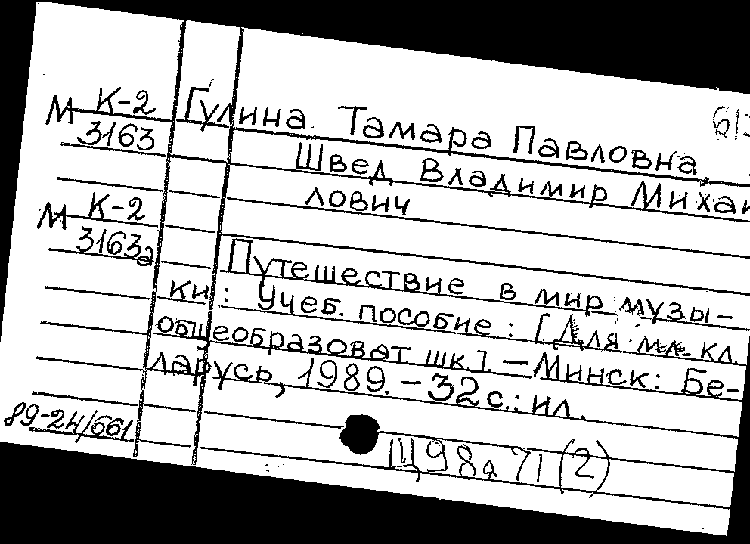 М К-2
3163
Гулина Тамара Павловна,
Швед Владимир Михай
лович
М К-2
3163а
Путешествие в мир музы-
ки: Учеб. пособие: [Для мл. кл.
общеобразоват шк.] – Минск: Бе-
ларусь, 1989. – 32 с.: ил.
89-24/661
Щ98я71(2)